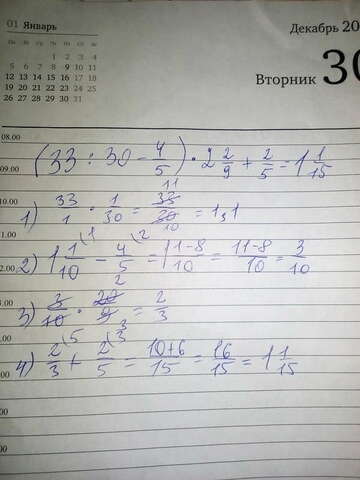 01 Январь
Декабрь 20
Пн Вт Ср Чт Пт Сб Вс
1 2 3 4
5 6 7 8 9 10 11
12 13 14 15 16 17 18
19 20 21 22 23 24 25
26 27 28 29 30 31
Вторник 30
08.00
(33 : 30 - 4/5) · 2 2/9 + 2/5 = 1 1/15
09.00
10.00
1) 33/1 · 1/30 = 33/30 = 1,1
11
10
11.00
2) 1 1/10 - 4/5 = 11-8/10 = 11-8/10 = 3/10
12.00
3) 3/10 · 20/9 = 2/3
2
3
4) 2/3 + 2/5 = 10+6/15 = 16/15 = 1 1/15